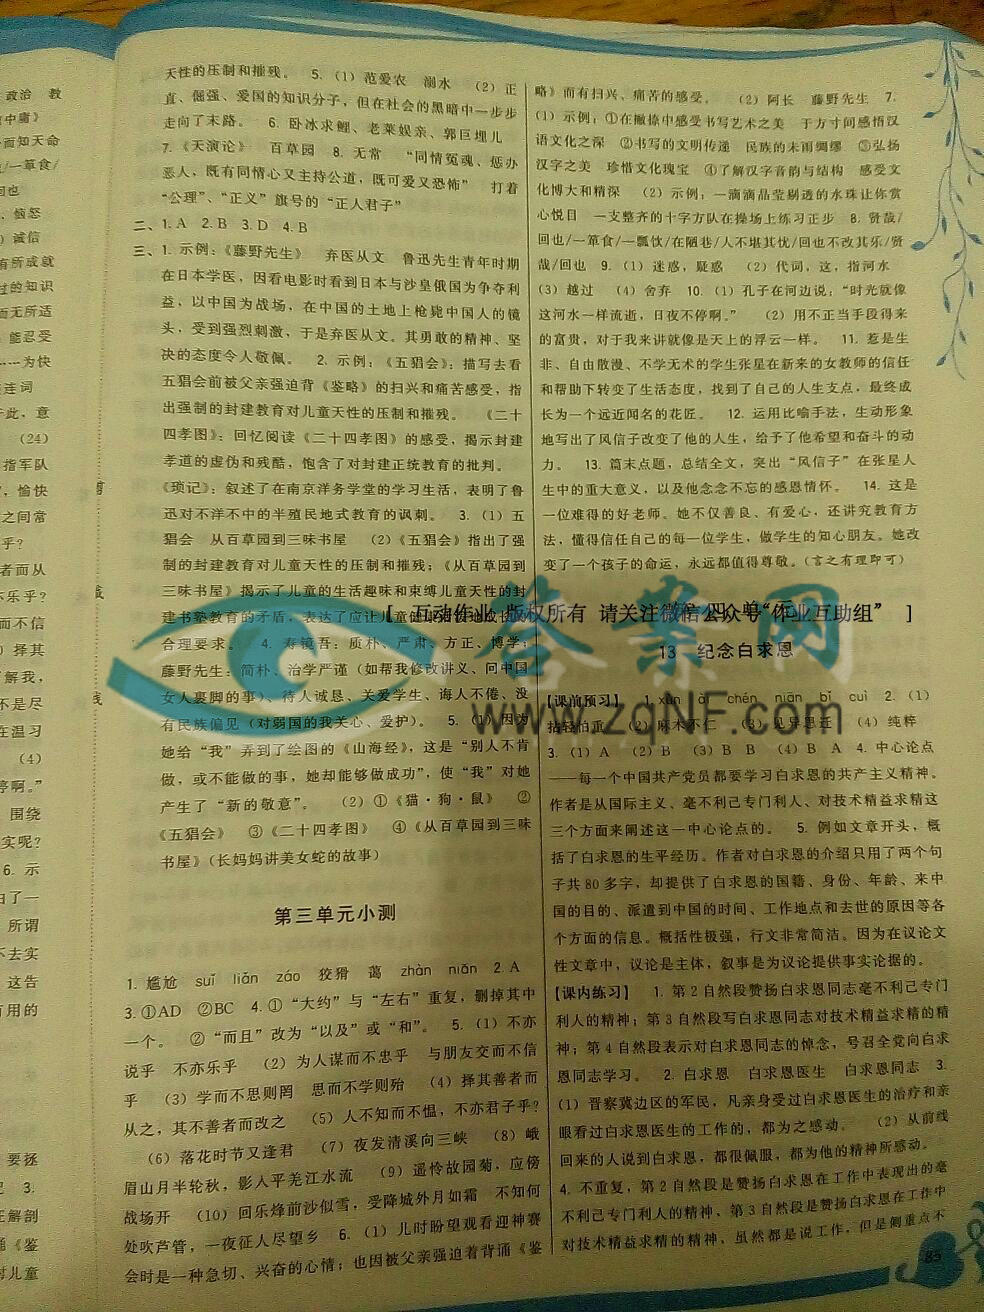 政治 教
中庸》
而知天命
/一箪食/
回也
、恼怒
）诚信
有所成就
过的知识
而无所适
能忍受
……为快
连词
于此，意
（24）
指军队
，愉快
之间常
乎？
者而从
不乐乎？
而不信
）择其
了解我，
不是尽
在温习
（4）
停啊。”
围绕
实呢？
6. 示
白了一
所谓
不去实
这告
有用的
要拯
3.
解剖
诵《鉴
对儿童
天性的压制和摧残。 5.（1）范爱农 溺水 （2）正
直、倔强、爱国的知识分子，但在社会的黑暗中一步步
走向了末路。 6. 卧冰求鲤、老莱娱亲、郭巨埋儿
7.《天演论》 百草园 8. 无常 “同情冤魂、惩办
恶人，既有同情心又主持公道，既可爱又恐怖” 打着
“公理”、“正义”旗号的“正人君子”
二、1. A 2. B 3. D 4. B
三、1. 示例：《藤野先生》 弃医从文 鲁迅先生青年时期
在日本学医，因看电影时看到日本与沙皇俄国为争夺利
益，以中国为战场，在中国的土地上枪毙中国人的镜
头，受到强烈刺激，于是弃医从文。其勇敢的精神、坚
决的态度令人敬佩。 2. 示例：《五猖会》：描写去看
五猖会前被父亲强迫背《鉴略》的扫兴和痛苦感受，指
出强制的封建教育对儿童天性的压制和摧残。 《二十
四孝图》：回忆阅读《二十四孝图》的感受，揭示封建
孝道的虚伪和残酷，饱含了对封建正统教育的批判。
《琐记》：叙述了在南京洋务学堂的学习生活，表明了鲁
迅对不洋不中的半殖民地式教育的讽刺。 3.（1）五
猖会 从百草园到三味书屋 （2）《五猖会》指出了强
制的封建教育对儿童天性的压制和摧残；《从百草园到
三味书屋》揭示了儿童的生活趣味和束缚儿童天性的封
建书塾教育的矛盾，表达了应让儿童健康活泼地成长的
合理要求。 4. 寿镜吾：质朴、严肃、方正、博学；
藤野先生：简朴、治学严谨（如帮我修改讲义、问中国
女人裹脚的事）、待人诚恳、关爱学生、诲人不倦、没
有民族偏见（对弱国的我关心、爱护）。 5.（1）因为
她给“我”弄到了绘图的《山海经》，这是“别人不肯
做，或不能做的事，她却能够做成功”，使“我”对她
产生了“新的敬意”。 （2）①《猫·狗·鼠》 ②
《五猖会》 ③《二十四孝图》 ④《从百草园到三味
书屋》（长妈妈讲美女蛇的故事）
第三单元小测
1. 尴尬 suǐ liǎn záo 狡猾 蔼 zhàn niǎn 2. A
3. ①AD ②BC 4. ①“大约”与“左右”重复，删掉其中
一个。 ②“而且”改为“以及”或“和”。 5.（1）不亦
说乎 不亦乐乎 （2）为人谋而不忠乎 与朋友交而不信
乎 （3）学而不思则罔 思而不学则殆 （4）择其善者而
从之，其不善者而改之 （5）人不知而不愠，不亦君子乎？
（6）落花时节又逢君 （7）夜发清溪向三峡 （8）峨
眉山月半轮秋，影入平羌江水流 （9）遥怜故园菊，应傍
战场开 （10）回乐烽前沙似雪，受降城外月如霜 不知何
处吹芦管，一夜征人尽望乡 6.（1）儿时盼望观看迎神赛
会时是一种急切、兴奋的心情；也因被父亲强迫着背诵《鉴
略》而有扫兴、痛苦的感受。 （2）阿长 藤野先生 7.
（1）示例：①在撇捺中感受书写艺术之美 于方寸间感悟汉
语文化之深 ②书写的文明传递 民族的未雨绸缪 ③弘扬
汉字之美 珍惜文化瑰宝 ④了解汉字音韵与结构 感受文
化博大和精深 （2）示例：一滴滴晶莹剔透的水珠让你赏
心悦目 一支整齐的十字方队在操场上练习正步 8. 贤哉/
回也/一箪食/一瓢饮/在陋巷/人不堪其忧/回也不改其乐/贤
哉/回也 9.（1）迷惑，疑惑 （2）代词，这，指河水
（3）越过 （4）舍弃 10.（1）孔子在河边说：“时光就像
这河水一样流逝，日夜不停啊。” （2）用不正当手段得来
的富贵，对于我来讲就像是天上的浮云一样。 11. 惹是生
非、自由散漫、不学无术的学生张星在新来的女教师的信任
和帮助下转变了生活态度，找到了自己的人生支点，最终成
长为一个远近闻名的花匠。 12. 运用比喻手法，生动形象
地写出了风信子改变了他的人生，给予了他希望和奋斗的动
力。 13. 篇末点题，总结全文，突出“风信子”在张星人
生中的重大意义，以及他念念不忘的感恩情怀。 14. 这是
一位难得的好老师。她不仅善良、有爱心，还讲究教育方
法，懂得信任自己的每一位学生，做学生的知心朋友。她改
变了一个孩子的命运，永远都值得尊敬。（言之有理即可）
[ 互动作业 版权所有 请关注微信公众号“作业互助组” ]
答案网
www.zqNF.com
13 纪念白求恩
【课前预习】 1. xùn chén niān bǐ cuì 2.（1）
拈轻怕重 （2）麻木不仁 （3）见异思迁 （4）纯粹
3.（1）A （2）B （3）B B （4）B A 4. 中心论点
——每一个中国共产党员都要学习白求恩的共产主义精神。
作者是从国际主义、毫不利己专门利人、对技术精益求精这
三个方面来阐述这一中心论点的。 5. 例如文章开头，概
括了白求恩的生平经历。作者对白求恩的介绍只用了两个句
子共80多字，却提供了白求恩的国籍、身份、年龄、来中
国的目的、派遣到中国的时间、工作地点和去世的原因等各
个方面的信息。概括性极强，行文非常简洁。因为在议论文
性文章中，议论是主体，叙事是为议论提供事实论据的。
【课内练习】 1. 第2自然段赞扬白求恩同志毫不利己专门
利人的精神；第3自然段写白求恩同志对技术精益求精的精
神；第4自然段表示对白求恩同志的悼念，号召全党向白求
恩同志学习。 2. 白求恩 白求恩医生 白求恩同志 3.
（1）晋察冀边区的军民，凡亲身受过白求恩医生的治疗和亲
眼看过白求恩医生的工作的，都为之感动。 （2）从前线
回来的人说到白求恩，都很佩服，都为他的精神所感动。
4. 不重复，第2自然段是赞扬白求恩在工作中表现出的毫
不利己专门利人的精神，第3自然段是赞扬白求恩在工作中
对技术精益求精的精神，虽然都是说工作，但是侧重点不
85